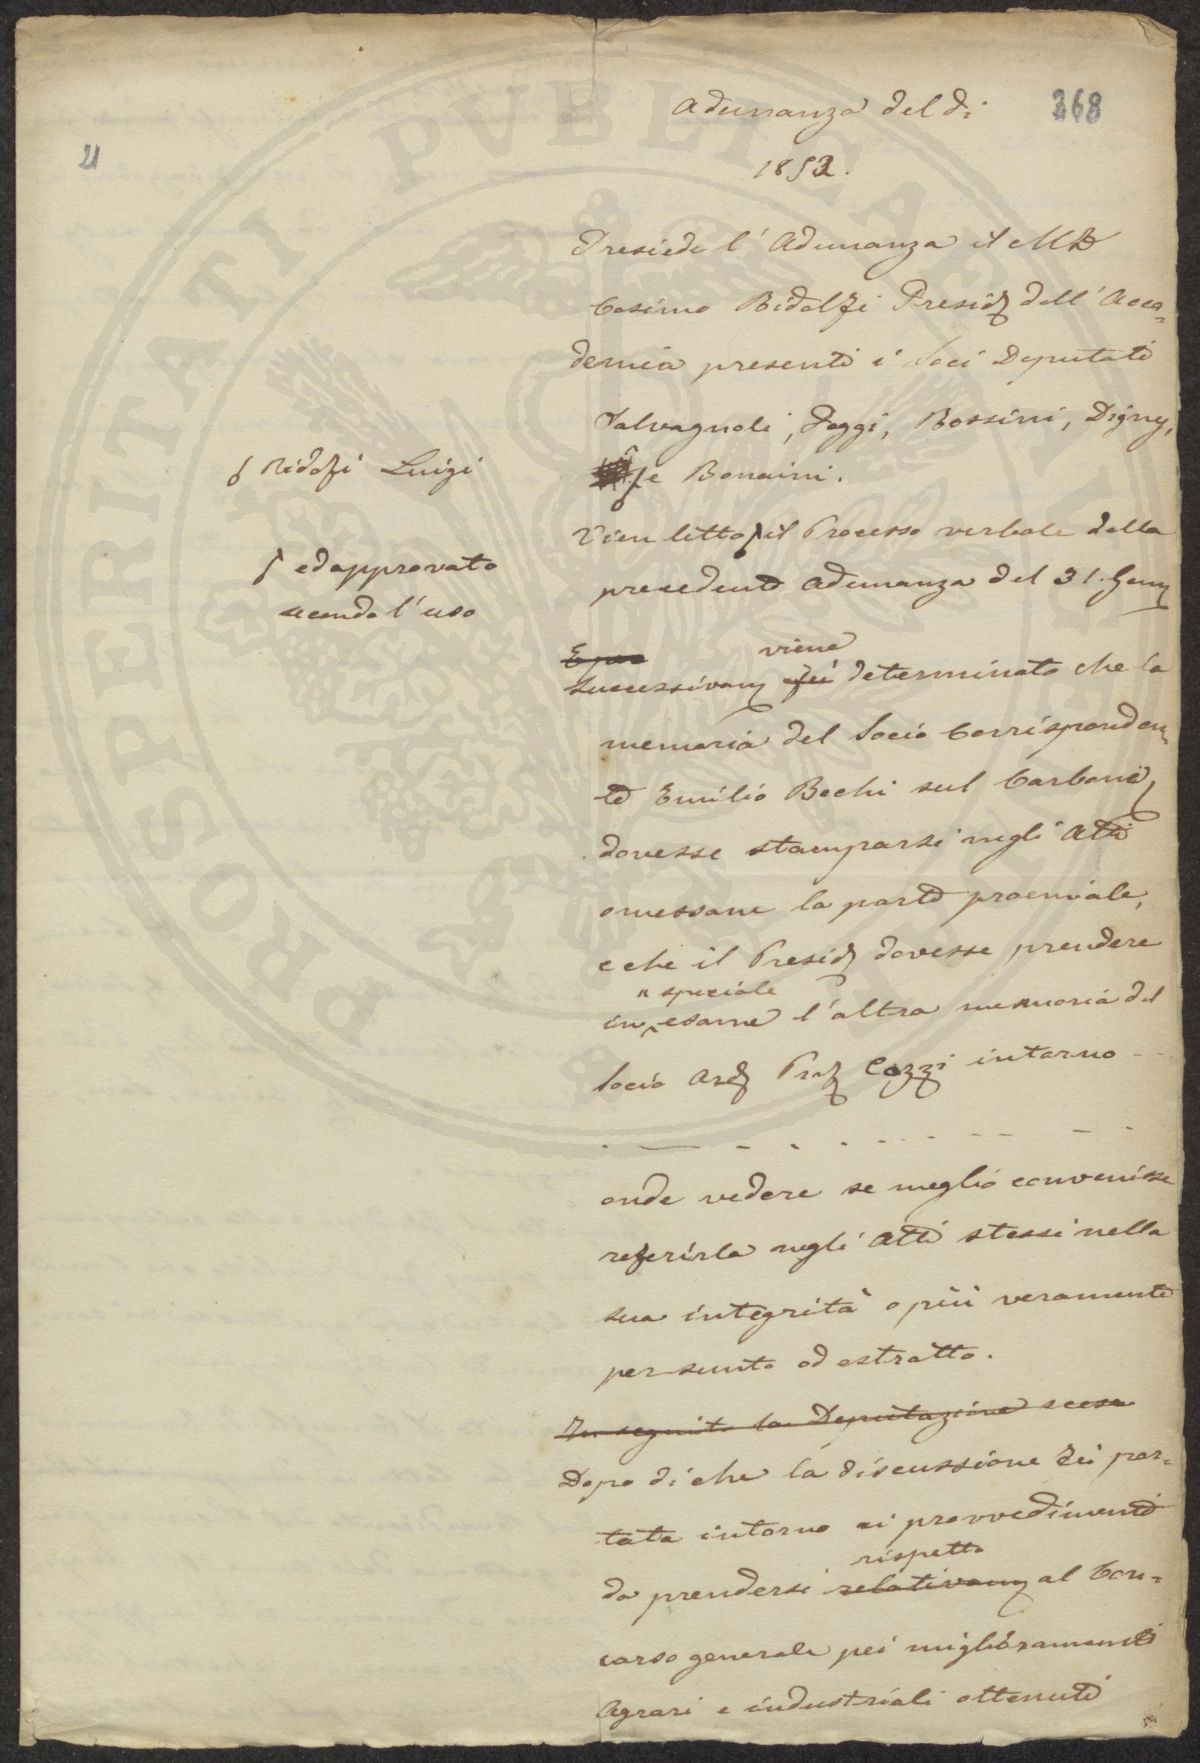 Adunanza del dì
368
21
1852.
Presiede l'Adunanza il M
Cosimo Ridolfi Presid dell'Acca=
demia presenti i Soci Deputati
Salvagnoli, Poggi, Rossini, Digny,
ſ Ridolfi Luigi
ſ e Bonaini.
Vien letto ſ il Processo verbale della
ſ ed approvato
secondo l'uso
precedente Adunanza del 31. Genn
viene
Successivam fu determinato che la
memoria del Socio Corrisponden=
te Emilio Bechi sul Carbone
dovesse stamparsi negli Atti
omessane la parte proemiale,
e che il Presid dovesse prendere
" speciale
in esame l'altra memoria del
Socio Ord Prof Cozzi intorno - -
. — - . . - - - - - - -
onde vedere se meglio convenisse
referirla negli Atti stessi nella
sua integrità o più veramente
per sunto od estratto.
In seguito la Deputazione scese
Dopo di che la discussione fu por=
tata intorno ai provvedimenti
rispetto
da prendersi relativam al Con=
corso generale pei miglioramenti
Agrari e industriali ottenuti
PROSPERITATI PVBLICAE